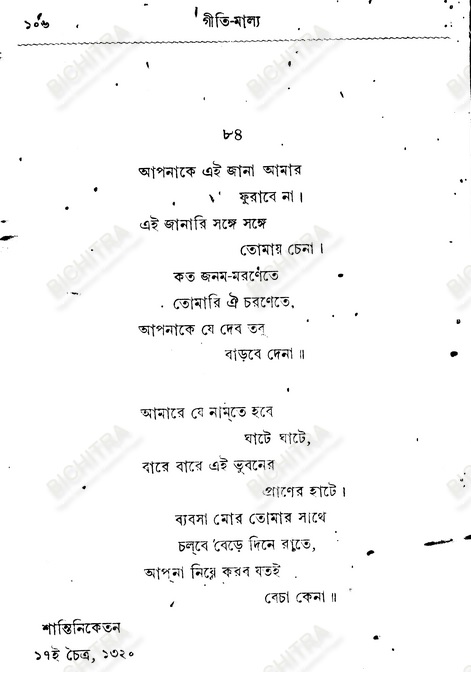 ১০৬ গীতি-মাল্য
৮৪
আপনাকে এই জানা আমার
ফুরাবে না।
এই জানারি সঙ্গে সঙ্গে
তোমায় চেনা।
কত জনম-মরণেতে
তোমারি ঐ চরণেতে,
আপনাকে যে দেব তবু
বাড়বে দেনা॥
আমারে যে নাম্‌তে হবে
ঘাটে ঘাটে,
বারে বারে এই ভুবনের
প্রাণের হাটে।
ব্যবসা মোর তোমার সাথে
চল্‌বে বেড়ে দিনে রাতে,
আপ্‌না নিয়ে করব যতই
বেচা কেনা॥
শান্তিনিকেতন
১৭ই চৈত্র, ১৩২০
BICHITRA
BICHITRA
BICHITRA
BICHITRA
BICHITRA
BICHITRA
BICHITRA
BICHITRA
BICHITRA